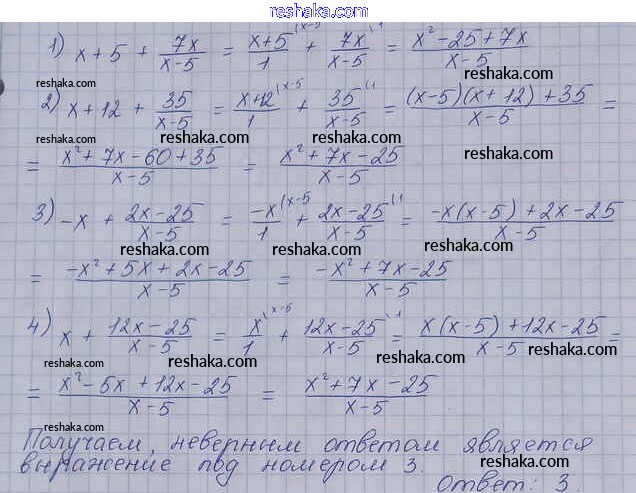 reshaka.com
1) x+5 + 7x/(x-5) = x+5/1 (x-5 + 7x/(x-5) \1 = (x²-25+7x)/(x-5)
reshaka.com reshaka.com reshaka.com
2) x+12 + 35/(x-5) = x+12/1 (x-5 + 35/(x-5) (1 = ((x-5)(x+12)+35)/(x-5) =
reshaka.com reshaka.com reshaka.com
= (x²+7x-60+35)/(x-5) = (x²+7x-25)/(x-5)
reshaka.com reshaka.com
3) -x + (2x-25)/(x-5) = -x/1 (x-5 + (2x-25)/(x-5) (1 = (-x(x-5)+2x-25)/(x-5)
reshaka.com reshaka.com reshaka.com
= (-x²+5x+2x-25)/(x-5) = (-x²+7x-25)/(x-5)
reshaka.com reshaka.com
4) x + (12x-25)/(x-5) = x/1 \x-5 + (12x-25)/(x-5) \1 = (x(x-5)+12x-25)/(x-5) =
reshaka.com reshaka.com reshaka.com
= (x²-5x+12x-25)/(x-5) = (x²+7x-25)/(x-5)
reshaka.com reshaka.com reshaka.com
Получаем, неверным ответом является
выражение под номером 3.
Ответ: 3.
reshaka.com reshaka.com reshaka.com